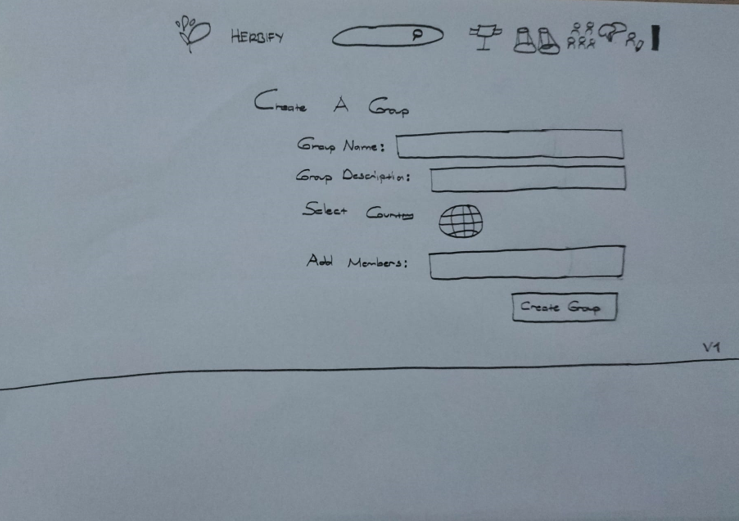 HERBIFY
Create A Group
Group Name:
Group Description:
Select Country
Add Members:
Create Group
V1